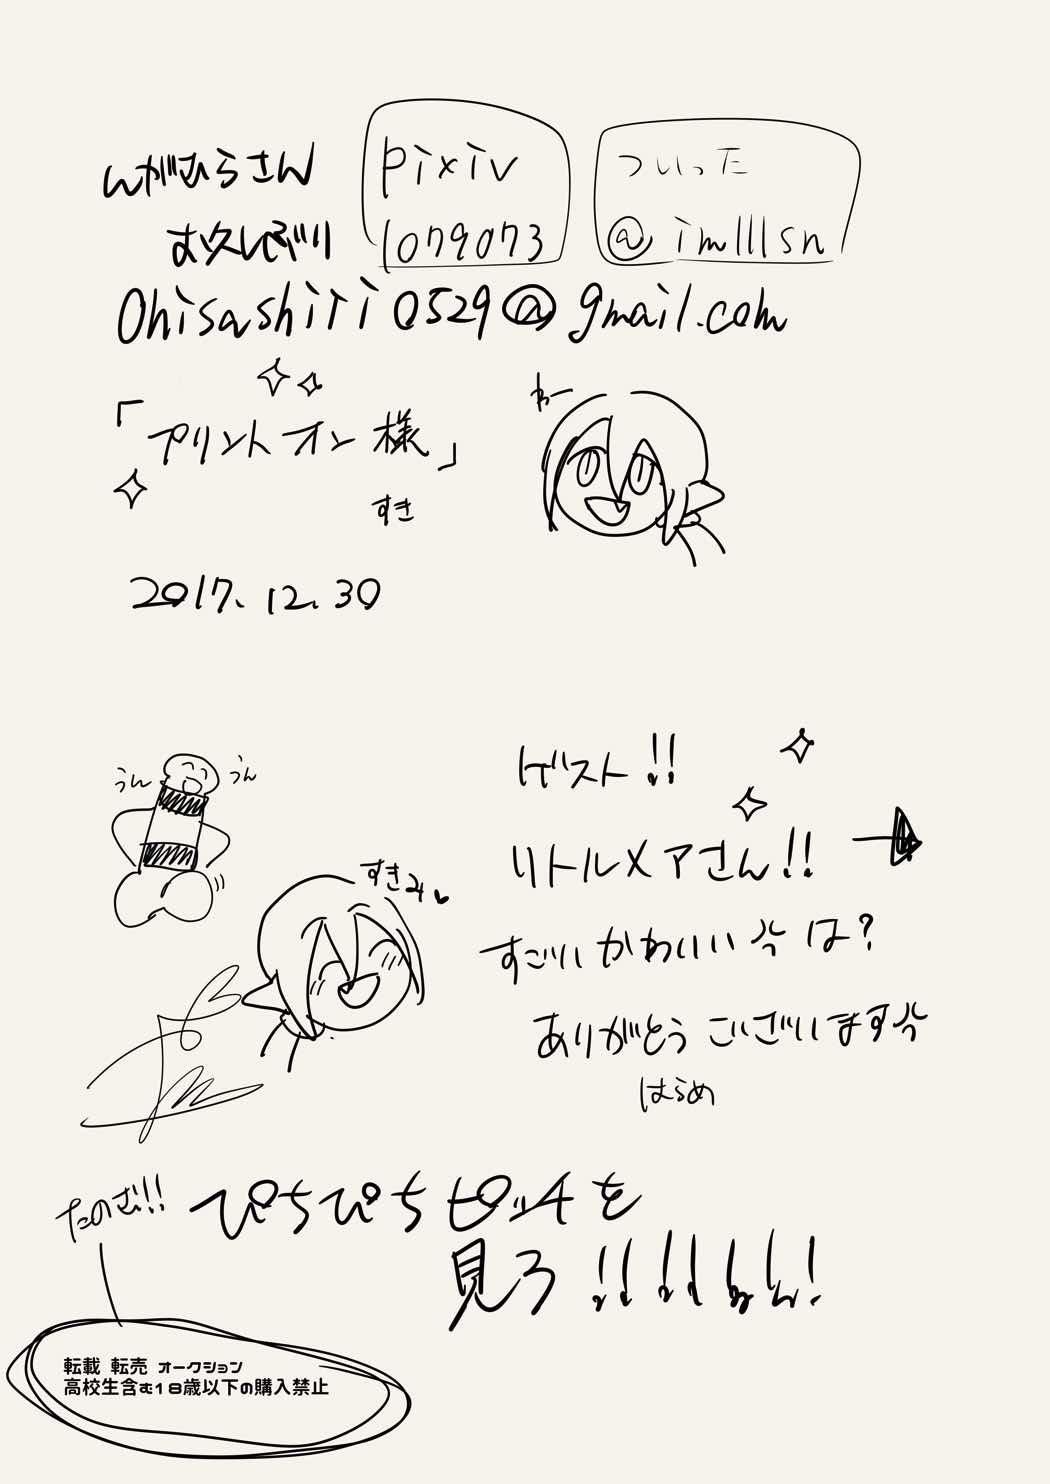 んがひらさん
お久しぶり
pixiv
1079073
ついった
@imlllsn
Ohisashiri0529@gmail.com
「プリントオン様」
すき
わー
2017.12.30
ゲスト!!
うん
うん
リトルメアさん!!
すきみ
すごいかわいい は?
ありがとうございます
はらめ
たのむ!!
ぴちぴちピッチを
見ろ!!!!!!!
転載 転売 オークション
高校生含む18歳以下の購入禁止